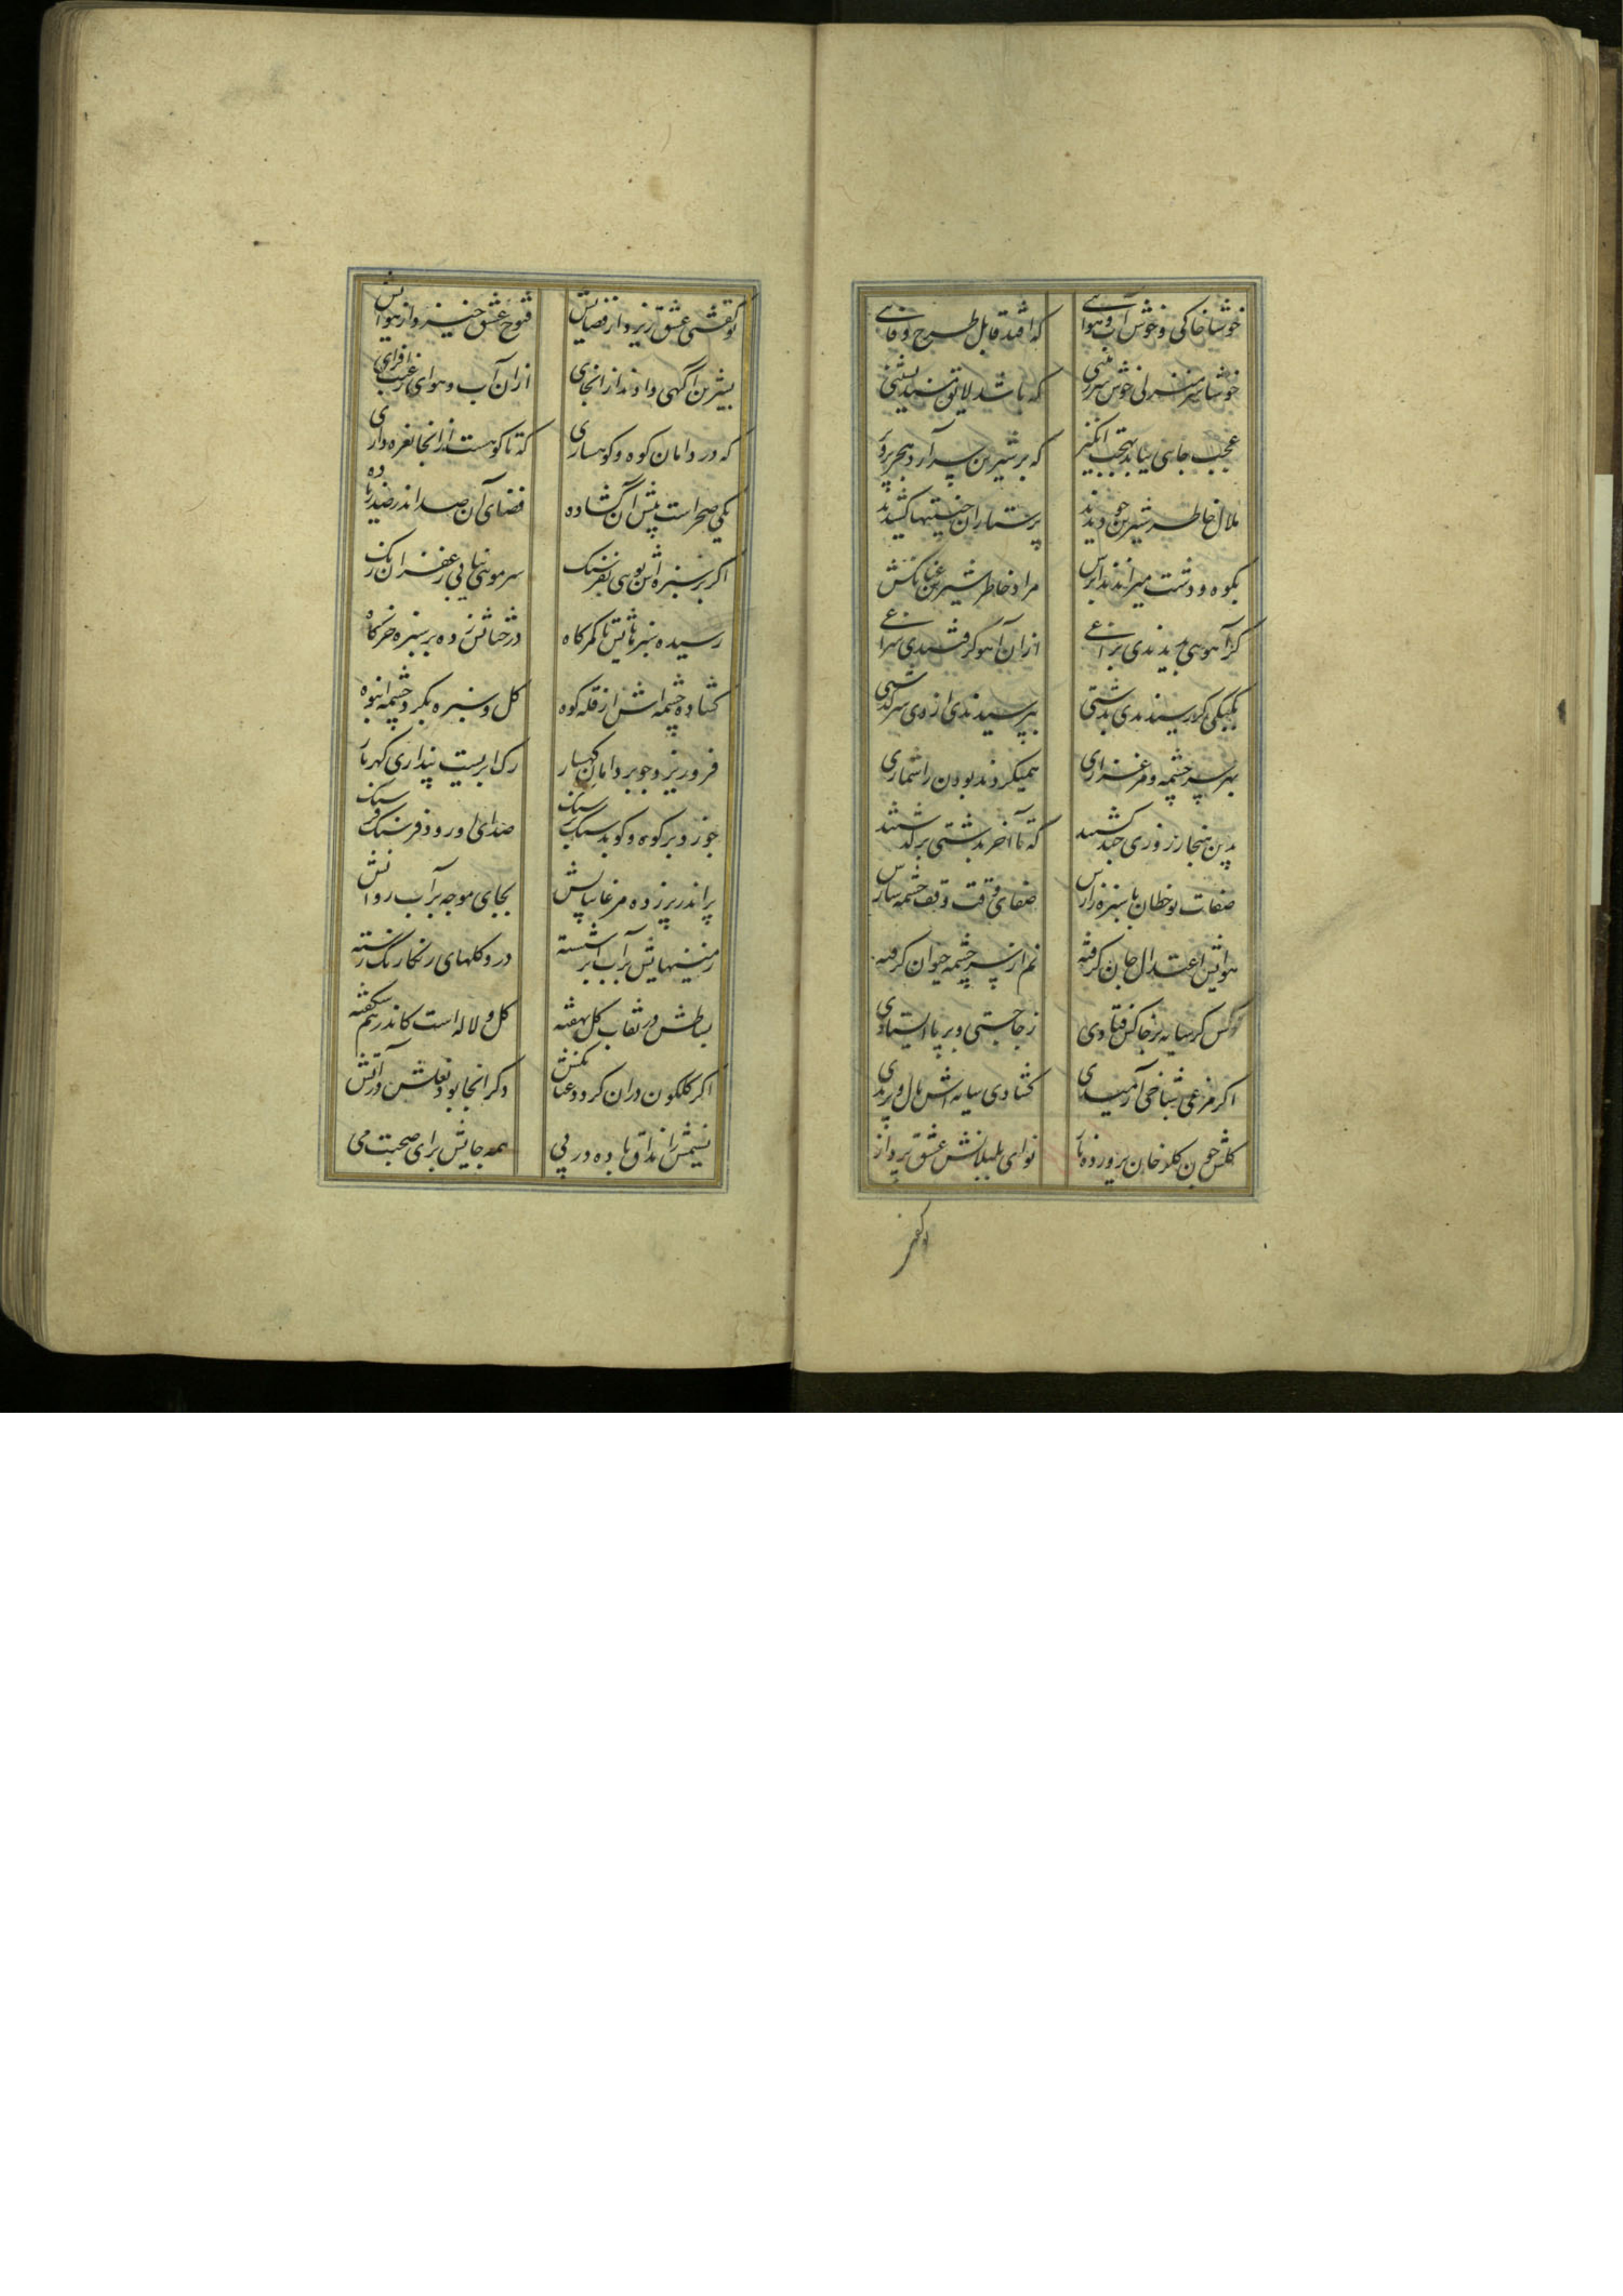 خوشا خاکی و خوش آب و هوائی که افتد قابل طرح وفائی
خوشا سر منزلی خوش سرزمینی که باشد لایق مسند نشینی
عجب جایی بباید بهجت انگیز که بر شیرین سر آرد هجر پرویز
ملال خاطر شیرین چو دیدند پرستاران جنیبتها کشیدند
بکوه و دشت میراندند ابرش مراد خاطر شیرین عنانکش
گر آهویی بدیدندی براغی ازان آهو گرفتندی سراغی
بکبکی گر رسیدندی بدشتی بپرسیدندی از وی سرگذشتی
بهر سرچشمه و هر مرغزاری همیکردند بودن را شماری
بدین هنجار روزی چند گشتند که تا آخر بدشتی برگذشتند
صفات نوخطان با سبزه زارش صفای وقت وقف چشمه سارش
هوایش اعتدال جان گرفته نم از سرچشمه حیوان گرفته
کسی گر سایه بر خاکش فتادی ز جا جستی و بر پا ایستادی
اگر مرغی بشاخی آرمیدی گشادی سایه اش بال و پریدی
گلش چون گلرخان پرورده ناز نوای بلبلانش عشق پرداز
تو گفتی
تو گفتی عشق ریزد از فضایش فتوح عشق خیزد از هوایش
بشیرین آگهی دادند از آنجای ازان آب و هوای رغبت افزای
که در دامان کوه و کوهساری که تا کوهست از آنجا نعره داری
یکی صحراست پیش آن گشاده فضای آن صدا اندر
اگر بر سبزه اش پویی بفرسنگ سر مویی نیابی زعفران رنگ
رسیده سبزهایش تا کمرگاه درختانش زده بر سبزه خرگاه
گشاده چشمه اش از قله کوه گل و سبزه بگرد چشمه انبوه
فرو ریزد چو بر دامان کهسار رگ ابریست پنداری گهربار
چو زد بر کوه و کوبد سنگ بر سنگ صدای او رود فرسنگ فرسنگ
پر اندر پر زده مرغابیانش بجای موجه بر آب روانش
زمینهایش بآب ابر شسته درو گلهای رنگارنگ رسته
بساطش در نقاب گل نهفته گل و لاله است کاندر هم شکفته
اگر گلگون دران گردد عنانکش وگر آنجا بود نعلش در آتش
نسیمش را مذاق باده در پی همه جایش برای صحبت می